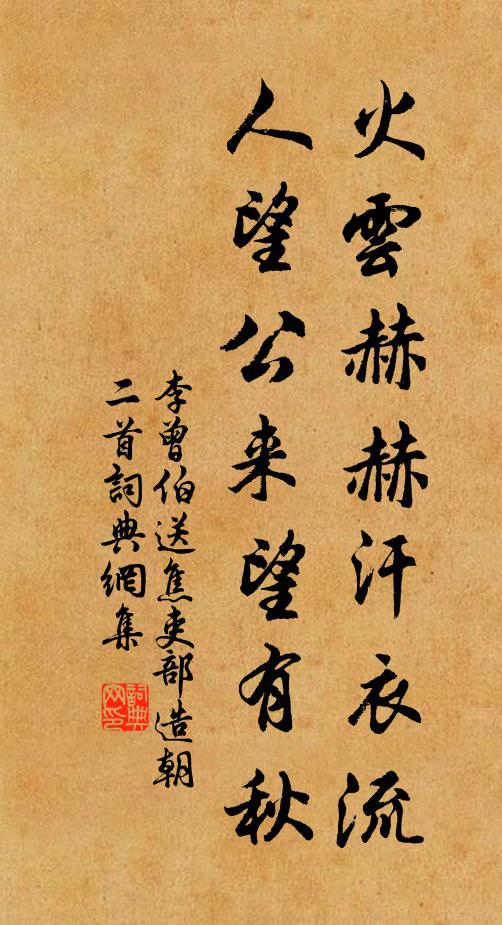 火雲赫赫汗衣流
人望公来望有秋
李曾伯送焦吏部造朝
二首詞典網集
詞典网印